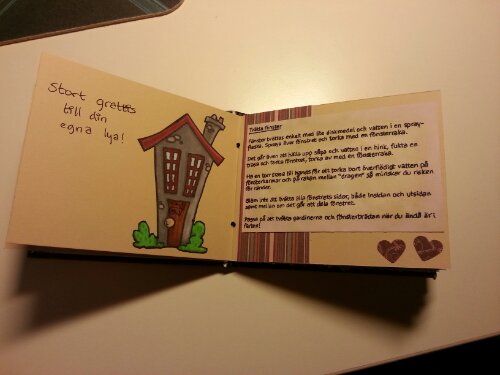 Stort grattis
till din
egna lya!
Tvätta fönster
Fönster tvättas enkelt med lite diskmedel och vatten i en spray-
flaska. Spraya över fönstret och torka med en fönsterraka.
Det går även att hälla upp såpa och vatten i en hink, fukta en
trasa och torka fönstret, torka av med en fönsterraka.
Ha en torr trasa till hands för att torka bort överflödigt vatten på
fönsterkarmar och på rakan mellan "dragen" så minskar du risken
för ränder.
Glöm inte att tvätta alla fönstrets sidor, både insidan och utsidan
samt mellan om det går att dela fönstret.
Passa på att tvätta gardinerna och fönsterbrädan när du ändå är i
farten!